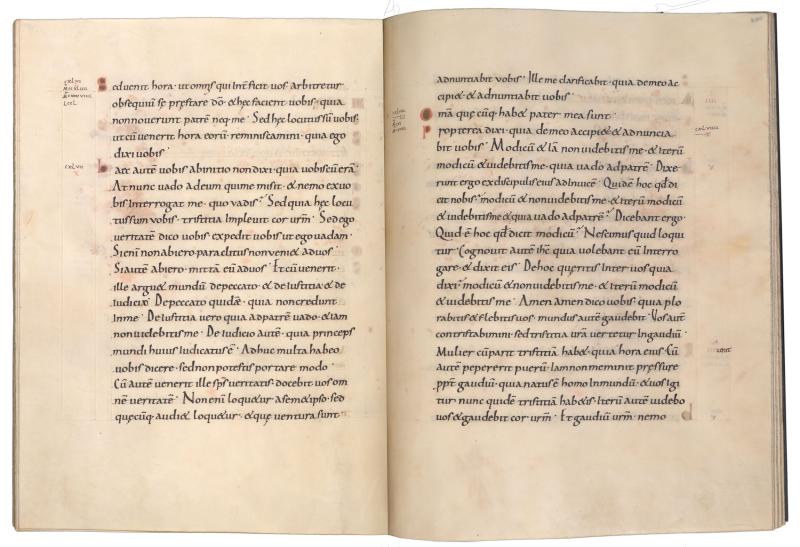 Sed venit hora · ut omnis qui interficit vos arbitretur
obsequiū se prȩstare dō · & hȩc facient uobis · quia
non noverunt patrē neq· me · Sed hȩc locutus sū uobis·
ut cū venerit hora eorū reminiscamini · quia ego
dixi uobis ·
Haec autē uobis ab initio non dixi · quia uobiscū erā·
At nunc uado ad eum qui me misit · & nemo ex uo
bis interrogat me · quo vadis · Sed quia hȩc locu
tus sum vobis · tristitia impleuit cor urm̄ · Sed ego
veritatē dico uobis expedit uobis ut ego vadam ·
Si enī non abiero paraclitus non veni& ad uos ·
Si autē abiero · mittā eū ad uos · Et cū venerit ·
ille argu& mundū de peccato · & de iustitia · & de
iudicio · De peccato quidē · quia non credunt
in me · De iustitia vero quia ad patrē uado · & iam
non uidebitis me · De iudicio autē · quia princeps
mundi huius iudicatus ē · Adhuc multa habeo
uobis dicere · sed non potestis portare modo ·
Cū autē venerit ille sp̄s veritatis docebit uos om
nē veritatē · Non enī loqu&ur a sem&ipso · sed
quȩcūq· audi& loqu&ur · & quȩ ventura sunt
adnuntiabit vobis · Ille me clarificabit · quia de meo ac
cipi& · & adnuntiabit uobis ·
Omā quȩ cūq· hab& pater mea sunt
Propterea dixi · quia de meo accipi& & adnuncia
bit uobis · Modicū & iā non uidebitis me · & iterū
modicū & uidebitis me · quia uado ad patrē · Dixe
runt ergo ex discipulis eius ad inuicē · Quid ē hoc qd̄ di
cit nobis · modicū & non uidebitis me · & iterū modicū
& uidebitis me & quia uado ad patrē · Dicebant ergo ·
Quid ē hoc qd̄ dicit modicū · Nescimus quid loqui
tur · Cognouit autē ihc̄ quia volebant eū interro
gare · & dixit eis · De hoc quȩritis inter uos quia
dixi · modicū & non uidebitis me · & iterū modicū
& uidebitis me · Amen amen dico uobis · quia plo
rabitis & flebitis uos · mundus autē gaudebit · Vos autē
contristabimini · sed tristitia urā vertetur in gaudiū ·
Mulier cū parit tristitiā hab& · quia hora eius · Cū
autē pepererit puerū · iam non meminit pressurȩ
ppt̄ gaudiū · quia natus ē homo in mundū · & uos igi
tur nunc quidē tristitiā hab&is · iterū autē uidebo
uos & gaudebit cor urm̄ · Et gaudiū urm̄ · nemo